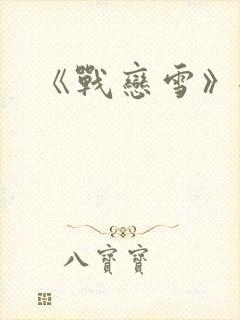 《戰戀雪》
八寶寶